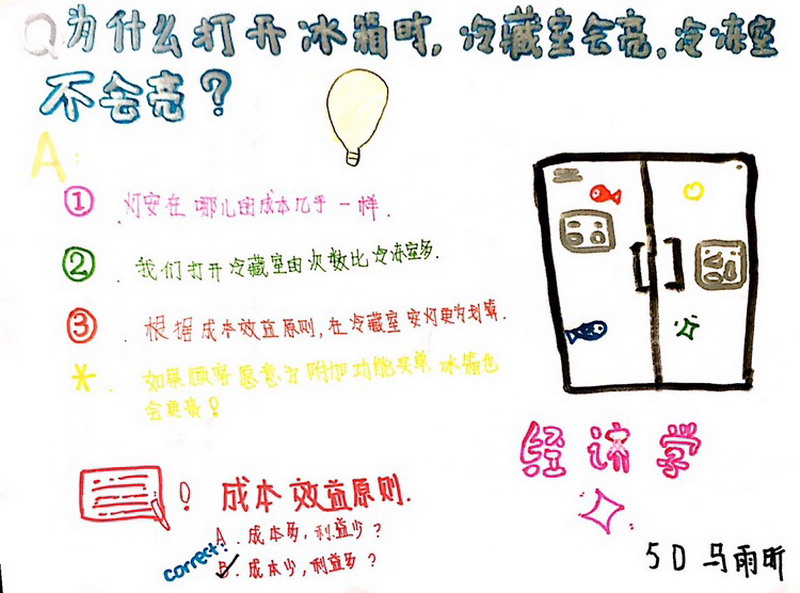 Q为什么打开冰箱时,冷藏室会亮。冷冻室
不会亮?
A:
① 灯安在哪儿的成本几乎一样.
② .我们打开冷藏室的次数比冷冻室多.
③ .根据成本效益原则,在冷藏室安灯更为划算.
* .如果顾客愿意为附加功能买单,冰箱也
会更贵!
! 成本效益原则.
A.成本多,利益少?
correct: B.成本少,利益多?
经济学
5D 马雨昕